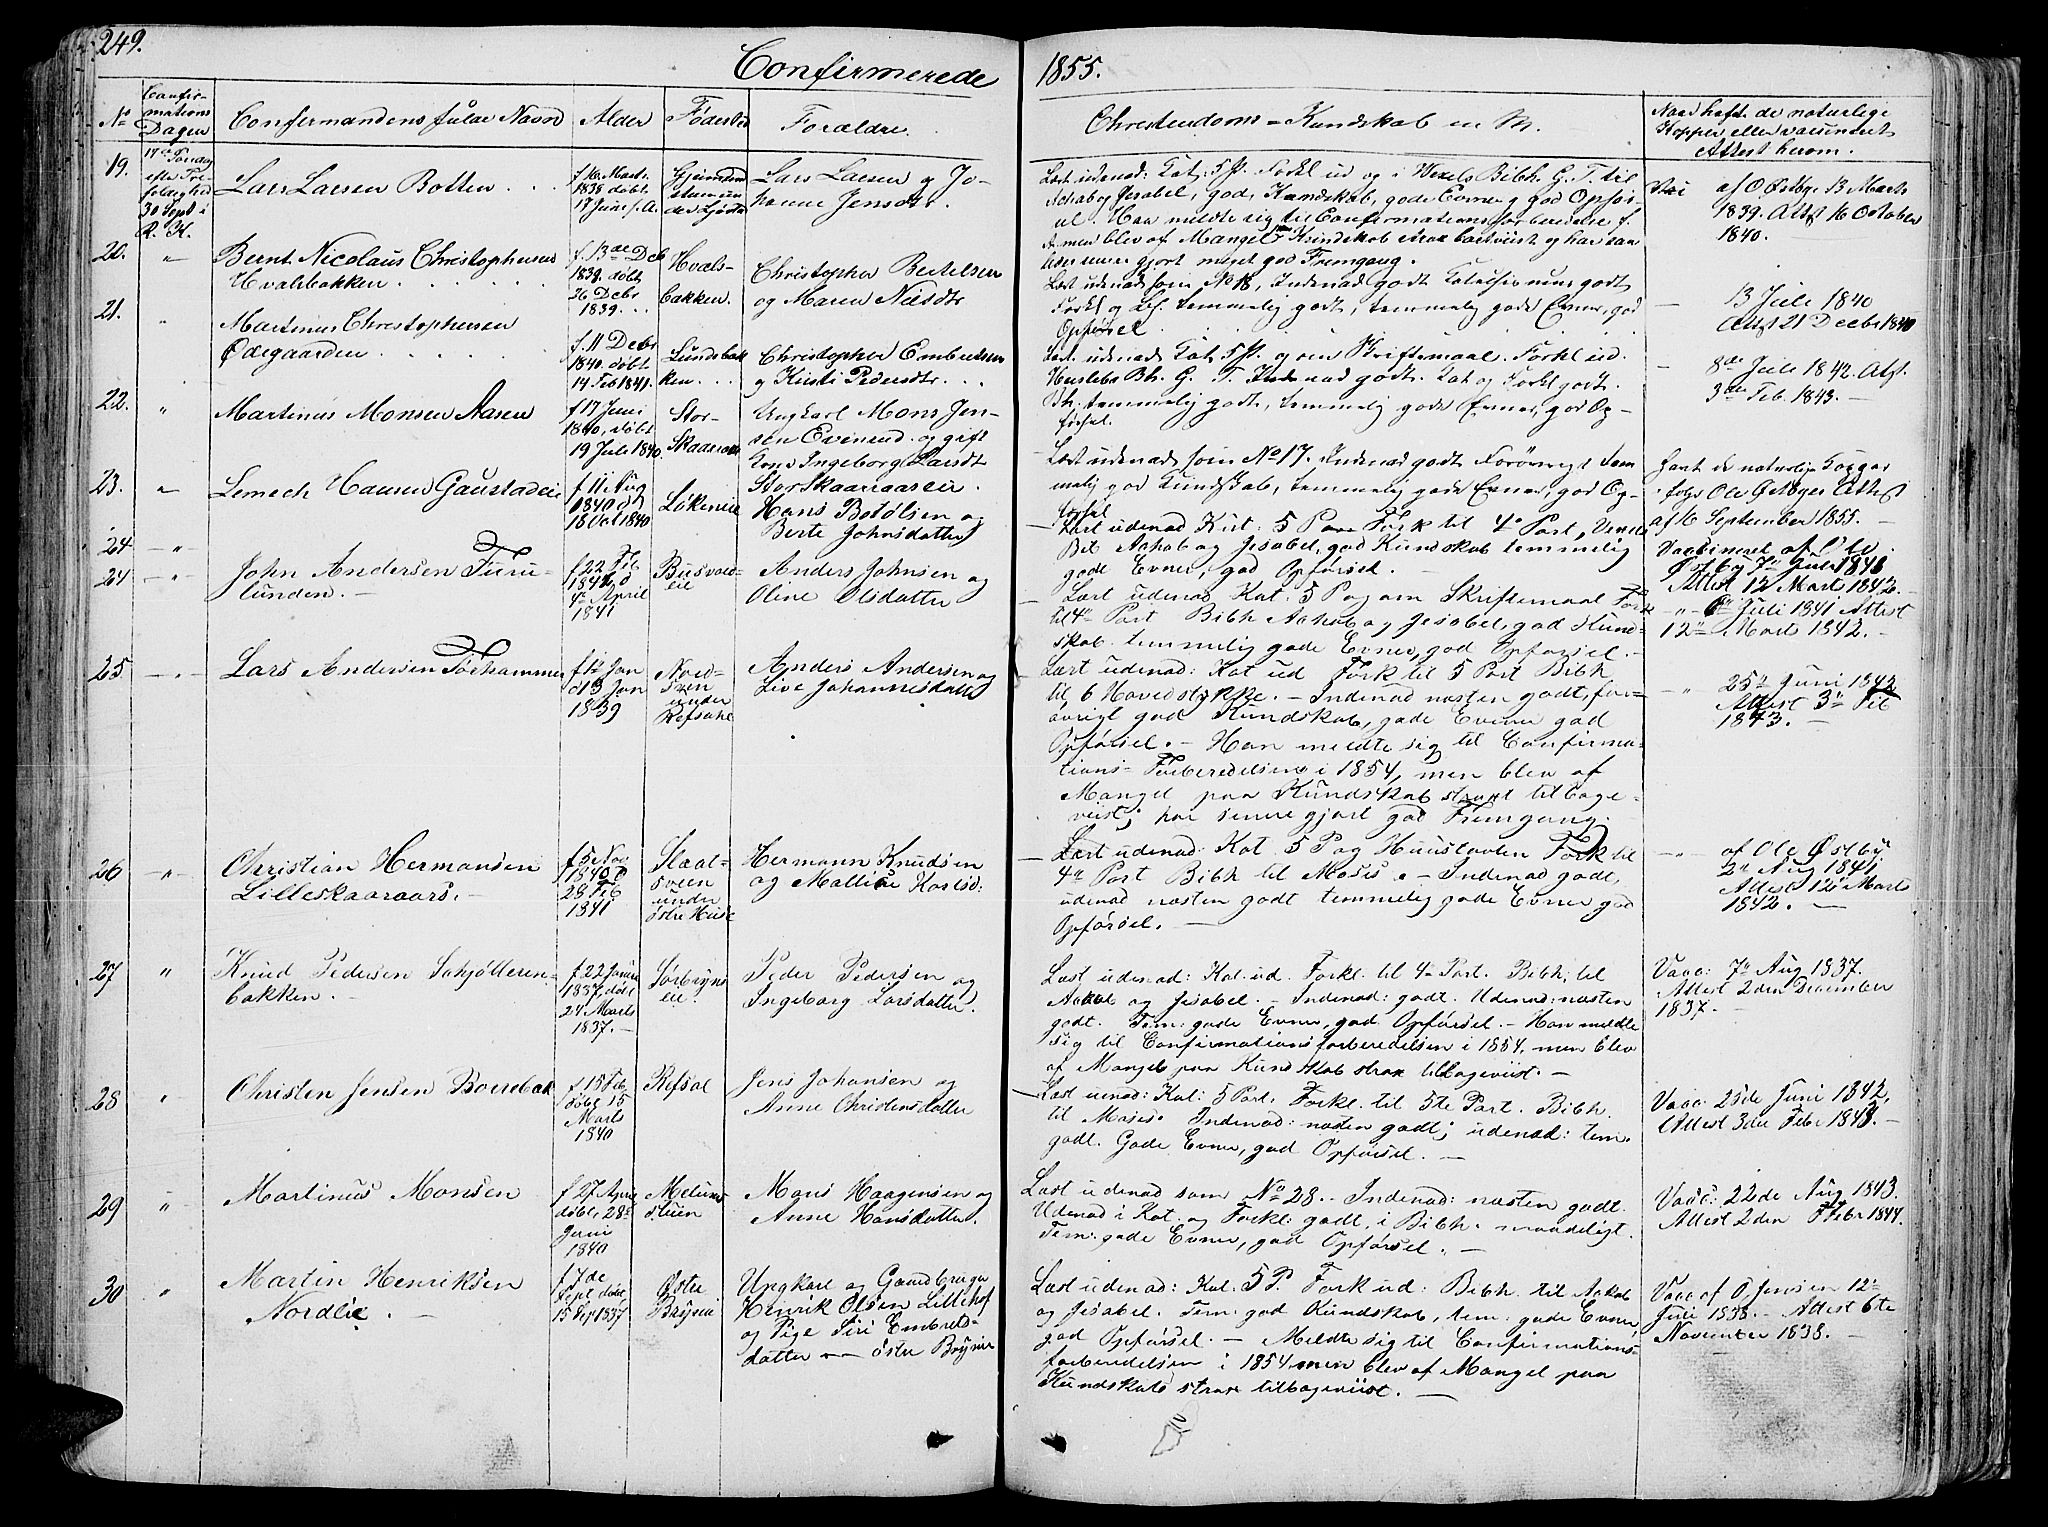 249.
Confirmerede
1855.
No
Confir-
mations
Dagen
Confermandens fulde Navn
Alder
Fødested
Forældre.
Christendoms-Kundskab en M.
Naar haft de naturlige
Kopper eller vaccineret
Attest herom.
19.
17de Søndag
efter Tre-
foldighed
30 Sept i
R. K.
Lars Larsen Botten . . .
f. Mart.
1838 døbt
17 Juni s. A.
Lars Larsen og Jo-
hanne Jensdt.
Læst udenad: Kat: 5 P. Forkl ud og i Wexels Bibh. G. T. til
Achab og Jesabel, god Kundskab, gode Evner og god Opfør-
sel. Han meldte sig til Confirmationsforberedelse f.
men blev af Mangel Kundskab strax bortviist og har saa
gjort meget god Fremgang.
af O Østbye 13 Marts
1839. Attst 16 October
1840.
20.
"
Bernt Nicolaus Christophersen
Hvalsbakken . . . . .
f. 13de Deb
1839. døbt
26 Debr
1839. . .
Hvals-
bakken.
Christopher Bertelsen
og Maren Nilsdtr
Læst udenad som No 18, Indenad godt Catechismus godt
Forkl og Bh. temmelig godt, temmelig gode Evner, god
Opførsel
—
13 Juli 1840
Attst 21 Decbr 1840
21.
"
Martinus Christophersen
Ødegaarden . . . . .
f. 11 Decbr
1840. døbt
14 Feb 1841.
Lundsbak
ken. . .
Christopher Embretsen
og Kirsti Pedersdtr. . .
Læst udenad Kat. 5 P. og om Skriftemaal. Forkl ud.
Bh. G. T. Indenad godt. Kat og Forkl godt.
Bh. temmelig godt, temmelig gode Evner, god Op-
førsel.
—
8de Juli 1842. Atst.
3die Feb. 1843. —
22.
"
Martinus Monsen Aasen
f 17 Juni
1840, døbt
19 Juli 1840.
Stor-
Skaaraas
Ungkarl Mons Jen-
sen Evenrud og gift
Kone Ingeborg Larsdt
Stor Skaaraasen.
Læst udenad som No 17. Indenad godt Forøvrigt tem
melig god Kundskab, temmelig gode Evner, god Op-
førsel
havt de naturlige Kopper
ifølge Ole Østbyes Attest
af 16 September 1855. —
23.
"
Lemech Hansen Gaustadeie
f 11 Aug
1840 d
18 Oct 1840
Løkeneie
Hans Botolsen og
Berte Johnsdatter
— Læst udenad Kat: 5 Par Fork til 4de Part, Verdens
Bib Achab og Jesabel, god Kundskab temmelig
gode Evner, god Opførsel. —
Vaccineret af Ole
Østby 7de Juli 1841
Attest 12 Marts 1842. —
24 — " —
24 — " —
John Andersen Furu-
lunden. —
f 22 Feb
1841, d
4de April
1841
Busvold-
eie
Anders Johnsen og
Oline Olsdatter
— Læst udenad Kat. 5 P og om Skriftemaal Fork
til 4de Part Bibh Achab og Jesabel, god Kund-
skab temmelig gode Evner, god Opførsel. —
— " — 6te Juli 1841 Attest
12te Marts 1842. —
25 — " —
Lars Andersen Sørhammer
f 1te Jan
d 13 Jan
1839
Nord-
sven
under
Refsahl
Anders Andersen og
Live Johannesdatter
Læst udenad: Kat ud Fork til 5 Part Bibh
til 6 Hovedstykke. — Indenad næsten godt, for-
øvrigt god Kundskab, gode Evner god
Opførsel. — Han meldte sig til Confirma-
tions-Forberedelsen i 1854, men blev af
Mangel paa Kundskab straxt tilbage-
viist; har senere gjort god Fremgang.
— " — 25te Juni 1842
Attest 3die Feb
1843. —
26 — " —
Christian Hermansen
Lilleskaaraas. —
f 5 Nov
1840 d
28 Feb
1841
Staal-
sveen
under
Østre Huse
Hermann Knudsen
og Mathise Karlsd:
— Læst udenad: Kat 5 P og Huustavlen Fork til
4de Part Bibh til Moses. — Indenad godt,
udenad næsten godt temmelig gode Evner god
Opførsel. —
— " — af Ole Østby
2de Aug 1841
Attest 12te Marts
1842. —
27 "
Knud Pedersen Schjølleren-
bakken. —
f 22 Januar
1837, døbt
24 Marts
1837. —
Sørbryns
eie.
Peder Pedersen og
Ingeborg Larsdatter.
Læst udenad: Kat. ud. Forkl. til 4de Part. Bibh. til
Achab og Jesabel. — Indenad: godt. Udenad: næsten
godt. Tem: gode Evner, god Opførsel. — Han meldte
sig til Confirmationsforberedelsen i 1854, men blev
af Mangel paa Kundskab strax tilbageviist. —
Vacc: 7de Aug 1837.
Attest 2den December
1837. —
28 "
Christen Jensen Borrebak
f 15 Feb
døbt 15
Marts
1840
Refsal
Jens Johansen og
Anne Christensdatter
— Læst uenad: Kat: 5 Part. Forkl. til 5te Part. Bibh.
til Moses. Indenad: næsten godt; udenad: tem.
godt. Gode Evner, god Opførsel. —
Vacc: 25de Juni 1842,
Attest 3die Febr 1843. —
29 "
Martinus Monsen
f 27 April
døbt 28de
Juni
1840
Mons Haagensen og
Anne Hansdatter.
Læst udenad som No 28. — Indenad: næsten godt.
Udenad i Kat. og Forkl: godt, i Bibh. maadeligt.
Tem: gode Evner, god Opførsel. —
Vacc: 22de Aug 1843.
Attest 2den Febr 1844.
30 "
Martin Henriksen
Nordlie. —
f 7de
Sept døbt
15 Sep 1837
Østre
Brynie
Ungkarl og Gaardbruger
Henrik Olsen Lillehof
og Pige Siri Embret-
datter — østre Brynie
Læst udenad: Kat. 5 P. Fork ud: Bibh. til Achab
og Jesabel. Tem: god Kundskab, tem: gode Evner,
god Opførsel. — Meldte sig til Confirmations-
forberedelsen i 1854 men blev af Mangel paa
Kundskab strax tilbageviist. —
Vacc af O Jensen 12te
Juli 1838. — Attest 6te
November 1838. —